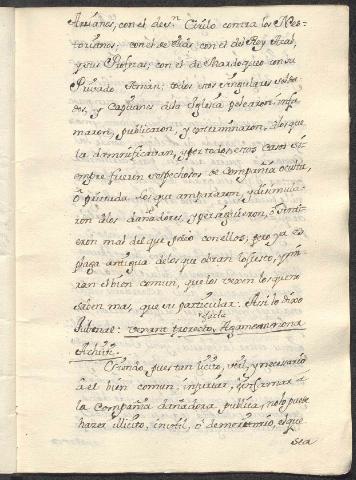 Arrianos, con el de Sn. Cirilo contra los Nes-
torianos; con el de Elias, con el del Rey Acab,
y sus Profetas; con el de Mardoqueo con su
Privado Aman; todos estos singulares solda-
dos, y Capitanes de la Iglesia pelearon, infa-
maron, publicaron, y exterminaron, a los que
la damnificavan, y por todos estos casos si-
empre fueron sospechosos de Compañia oculta,
ô privada los que ampararon, y disimula-
ron a los dañadores, y persiguieron, ô sinti-
eron mal del que peleò con ellos; pero ya es
plaga antigua de los que obran lo justo, y mi-
ran el bien comun, que los vexen los que no
saben mas, que su particular. Asi lo dixo
Jubenal: tecto
Agamemnona
Siendo, pues tan licito, util, y necesario
à el bien comun impugnar, ê infamar à
la Compañia dañadora publica, no lo puede
hazer illicito, inutil, ô demeritorio, el que
sea